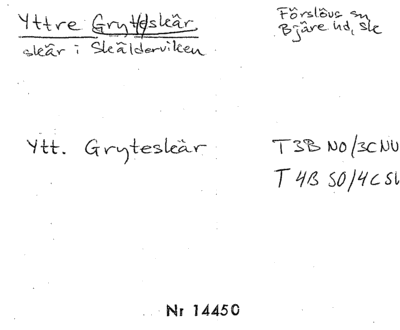 Yttre Gryteskär
skär i Skälderviken
Förslövs sn
Bjäre hd, Sk
Ytt. Gryteskär
T 3B NO/3C NV
T 4B SO/4C SV
Nr 14450